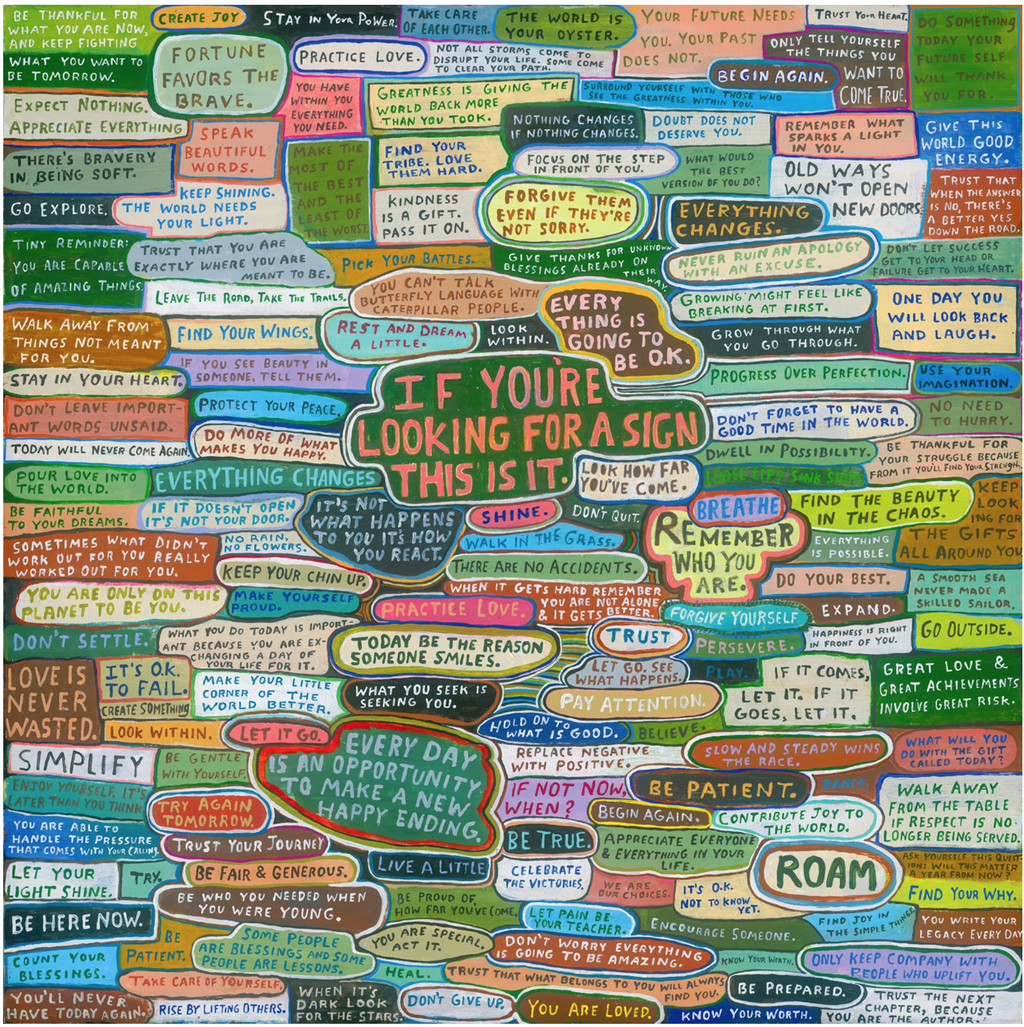 BE THANKFUL FOR
WHAT YOU ARE NOW,
AND KEEP FIGHTING
WHAT YOU WANT TO
BE TOMORROW.
CREATE JOY
STAY IN YOUR POWER.
TAKE CARE
OF EACH OTHER.
THE WORLD IS
YOUR OYSTER.
YOUR FUTURE NEEDS
YOU. YOUR PAST
DOES NOT.
TRUST YOUR HEART.
DO SOMETHING
TODAY YOUR
FUTURE SELF
WILL THANK
YOU FOR.
FORTUNE
FAVORS THE
BRAVE.
PRACTICE LOVE.
NOT ALL STORMS COME TO
DISRUPT YOUR LIFE. SOME COME
TO CLEAR YOUR PATH.
ONLY TELL YOURSELF
THE THINGS YOU
WANT TO
COME TRUE.
BEGIN AGAIN.
EXPECT NOTHING.
APPRECIATE EVERYTHING
YOU HAVE
WITHIN YOU
EVERYTHING
YOU NEED.
GREATNESS IS GIVING THE
WORLD BACK MORE
THAN YOU TOOK.
SURROUND YOURSELF WITH THOSE WHO
SEE THE GREATNESS WITHIN YOU.
SPEAK
BEAUTIFUL
WORDS.
NOTHING CHANGES
IF NOTHING CHANGES.
DOUBT DOES NOT
DESERVE YOU.
REMEMBER WHAT
SPARKS A LIGHT
IN YOU.
GIVE THIS
WORLD GOOD
ENERGY.
THERE'S BRAVERY
IN BEING SOFT.
MAKE THE
MOST OF
THE BEST
AND THE
LEAST OF
THE WORST.
FIND YOUR
TRIBE. LOVE
THEM HARD.
FOCUS ON THE STEP
IN FRONT OF YOU.
WHAT WOULD
THE BEST
VERSION OF YOU DO?
OLD WAYS
WON'T OPEN
NEW DOORS.
TRUST THAT
WHEN THE ANSWER
IS NO, THERE'S
A BETTER YES
DOWN THE ROAD.
GO EXPLORE.
KEEP SHINING.
THE WORLD NEEDS
YOUR LIGHT.
KINDNESS
IS A GIFT.
PASS IT ON.
FORGIVE THEM
EVEN IF THEY'RE
NOT SORRY.
EVERYTHING
CHANGES.
TINY REMINDER:
YOU ARE CAPABLE
OF AMAZING THINGS.
TRUST THAT YOU ARE
EXACTLY WHERE YOU ARE
MEANT TO BE.
PICK YOUR BATTLES.
GIVE THANKS FOR UNKNOWN
BLESSINGS ALREADY ON
THEIR
WAY.
NEVER RUIN AN APOLOGY
WITH AN EXCUSE.
DON'T LET SUCCESS
GET TO YOUR HEAD OR
FAILURE GET TO YOUR HEART.
LEAVE THE ROAD, TAKE THE TRAILS.
YOU CAN'T TALK
BUTTERFLY LANGUAGE WITH
CATERPILLAR PEOPLE.
EVERY
THING IS
GOING TO
BE O.K.
GROWING MIGHT FEEL LIKE
BREAKING AT FIRST.
ONE DAY YOU
WILL LOOK BACK
AND LAUGH.
WALK AWAY FROM
THINGS NOT MEANT
FOR YOU.
FIND YOUR WINGS.
REST AND DREAM
A LITTLE.
LOOK
WITHIN.
GROW THROUGH WHAT
YOU GO THROUGH.
IF YOU SEE BEAUTY IN
SOMEONE, TELL THEM.
STAY IN YOUR HEART.
IF YOU'RE
LOOKING FOR A SIGN
THIS IS IT.
PROGRESS OVER PERFECTION.
USE YOUR
IMAGINATION.
DON'T LEAVE IMPOR-
TANT WORDS UNSAID.
PROTECT YOUR PEACE.
DON'T FORGET TO HAVE A
GOOD TIME IN THE WORLD.
NO NEED
TO HURRY.
TODAY WILL NEVER COME AGAIN.
DO MORE OF WHAT
MAKES YOU HAPPY.
DWELL IN POSSIBILITY.
BE THANKFUL FOR
YOUR STRUGGLE BECAUSE
FROM IT YOU'LL FIND YOUR STRENGTH.
POUR LOVE INTO
THE WORLD.
EVERYTHING CHANGES
LOOK HOW FAR
YOU'VE COME.
BE FAITHFUL
TO YOUR DREAMS.
IF IT DOESN'T OPEN
IT'S NOT YOUR DOOR.
IT'S NOT
WHAT HAPPENS
TO YOU IT'S HOW
YOU REACT.
SHINE.
DON'T QUIT.
BREATHE
FIND THE BEAUTY
IN THE CHAOS.
KEEP
LOOK
ING FOR
THE GIFTS
ALL AROUND YOU
SOMETIMES WHAT DIDN'T
WORK OUT FOR YOU REALLY
WORKED OUT FOR YOU.
NO RAIN,
NO FLOWERS.
WALK IN THE GRASS.
REMEMBER
WHO YOU
ARE.
EVERYTHING
IS POSSIBLE.
KEEP YOUR CHIN UP.
THERE ARE NO ACCIDENTS.
DO YOUR BEST.
A SMOOTH SEA
NEVER MADE A
SKILLED SAILOR.
YOU ARE ONLY ON THIS
PLANET TO BE YOU.
MAKE YOURSELF
PROUD.
PRACTICE LOVE.
WHEN IT GETS HARD REMEMBER
YOU ARE NOT ALONE
& IT GETS BETTER.
FORGIVE YOURSELF
EXPAND.
DON'T SETTLE.
WHAT YOU DO TODAY IS IMPORT-
ANT BECAUSE YOU ARE EX-
CHANGING A DAY OF
YOUR LIFE FOR IT.
TODAY BE THE REASON
SOMEONE SMILES.
TRUST
PERSEVERE.
HAPPINESS IS RIGHT
IN FRONT OF YOU.
GO OUTSIDE.
LOVE IS
NEVER
WASTED.
IT'S O.K.
TO FAIL.
CREATE SOMETHING
MAKE YOUR LITTLE
CORNER OF THE
WORLD BETTER.
WHAT YOU SEEK IS
SEEKING YOU.
LET GO. SEE
WHAT HAPPENS.
PLAY.
IF IT COMES,
LET IT. IF IT
GOES, LET IT.
GREAT LOVE &
GREAT ACHIEVEMENTS
INVOLVE GREAT RISK.
PAY ATTENTION.
LOOK WITHIN.
LET IT GO.
HOLD ON TO
WHAT IS GOOD.
BELIEVE.
SIMPLIFY
BE GENTLE
WITH YOURSELF.
EVERY DAY
IS AN OPPORTUNITY
TO MAKE A NEW
HAPPY ENDING.
REPLACE NEGATIVE
WITH POSITIVE.
SLOW AND STEADY WINS
THE RACE.
WHAT WILL YOU
DO WITH THE GIFT
CALLED TODAY?
ENJOY YOURSELF. IT'S
LATER THAN YOU THINK.
IF NOT NOW,
WHEN?
BE PATIENT.
DANCE.
WALK AWAY
FROM THE TABLE
IF RESPECT IS NO
LONGER BEING SERVED.
TRY AGAIN
TOMORROW.
BEGIN AGAIN.
CONTRIBUTE JOY TO
THE WORLD.
YOU ARE ABLE TO
HANDLE THE PRESSURE
THAT COMES WITH YOUR CALLING.
TRUST YOUR JOURNEY
BE TRUE.
APPRECIATE EVERYONE
& EVERYTHING IN YOUR
LIFE.
ROAM
ASK YOURSELF THIS QUEST-
ION: WILL THIS MATTER
A YEAR FROM NOW?
LET YOUR
LIGHT SHINE.
TRY.
BE FAIR & GENEROUS.
LIVE A LITTLE
CELEBRATE
THE VICTORIES.
WE ARE
OUR CHOICES.
IT'S O.K.
NOT TO KNOW
YET.
FIND YOUR WHY.
BE HERE NOW.
BE WHO YOU NEEDED WHEN
YOU WERE YOUNG.
BE PROUD OF
HOW FAR YOU'VE COME.
LET PAIN BE
YOUR TEACHER.
ENCOURAGE SOMEONE.
FIND JOY IN
THE SIMPLE THINGS
YOU WRITE YOUR
LEGACY EVERY DAY
BE
PATIENT.
SOME PEOPLE
ARE BLESSINGS AND SOME
PEOPLE ARE LESSONS.
YOU ARE SPECIAL.
ACT IT.
DON'T WORRY EVERYTHING
IS GOING TO BE AMAZING.
KNOW YOUR WORTH.
ONLY KEEP COMPANY WITH
PEOPLE WHO UPLIFT YOU.
COUNT YOUR
BLESSINGS.
HEAL.
TRUST THAT WHAT BELONGS TO YOU WILL ALWAYS
FIND YOU.
TAKE CARE OF YOURSELF.
BE PREPARED.
YOU'LL NEVER
HAVE TODAY AGAIN.
RISE BY LIFTING OTHERS.
WHEN IT'S
DARK LOOK
FOR THE STARS.
DON'T GIVE UP.
YOU ARE LOVED.
KNOW YOUR WORTH.
TRUST THE NEXT
CHAPTER, BECAUSE
YOU ARE THE AUTHOR.